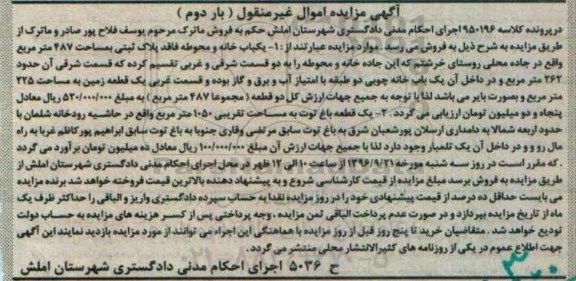 آگهی مزایده اموال غیرمنقول ( بار دوم )
درپرونده کلاسه ۹۵۰۱۹۶ اجرای احکام مدنی دادگستری شهرستان املش حکم به فروش ماترک مرحوم یوسف فلاح پور صادر و ماترک از
طریق مزایده به شرح ذیل به فروش می رسد . موارد مزایده عبارتند از :۱- یکباب خانه و محوطه فاقد پلاک ثبتی بمساحت ۴۸۷ متر مربع
واقع در جاده محلی روستای خرشتم که این جاده خانه و محوطه را به دو قسمت شرقی و غربی تقسیم کرده که قسمت شرقی آن حدود
۲۶۲ متر مربع و در داخل آن یک باب خانه چوبی دو طبقه با امتیاز آب و برق و گاز بوده و قسمت غربی یک قطعه زمین به مساحت ۲۲۵
متر مربع و بصورت بایر می باشد لذا با توجه به جمیع جهات ارزش کل دو قطعه ( مجموعا ۴۸۷ متر مربع ) به مبلغ ۵۲۰/۰۰۰/۰۰۰ ریال معادل
پنجاه و دو میلیون تومان ارزیابی می گردد . ۲- یک قطعه باغ توت به مساحت تقریبی ۱۰۵۰ متر مربع واقع در حاشیه رودخانه شلمان با
حدود اربعه شمالا به دامداری ارسلان پورشعبان شرق به باغ توت سابق مرتضی وقاری جنوبا به باغ توت سابق ابراهیم پورکاظم غربا به راه
مال رو و در داخل آن یک تلمبار وجود دارد لذا با جمیع جهات ارزش آن مبلغ ۱۰۰/۰۰۰/۰۰۰ ریال معادل ده میلیون تومان برآورد می گردد
. که مقرر است در روز سه شنبه مورخه ۱۳۹۶/۹/۲۱ از ساعت ۱۰ الی ۱۲ ظهر در محل اجرای احکام مدنی دادگستری شهرستان املش از
طریق مزایده به فروش برسد مبلغ مزایده از قیمت کارشناسی شروع و به پیشنهاد دهنده بالاترین قیمت فروخته خواهد شد برنده مزایده
می بایست حداقل ده درصد از قیمت پیشنهادی خود را در روز مزایده نقدا به حساب سپرده دادگستری واریز و الباقی را حداکثر ظرف یک
ماه از تاریخ مزایده بپردازد و در صورت عدم پرداخت الباقی ثمن مزایده ، وجه پرداختی پس از کسر هزینه های مزایده به حساب دولت
تودیع خواهد شد . متقاضیان خرید تا پنج روز قبل از روز مزایده با هماهنگی این اجراء می توانند از مورد مزایده بازدید نمایند این آگهی
جهت اطلاع عموم در یکی از روزنامه های کثیرالانتشار محلی منتشر می گردد.
ح ۵۰۳۶ اجرای احکام مدنی دادگستری شهرستان املش